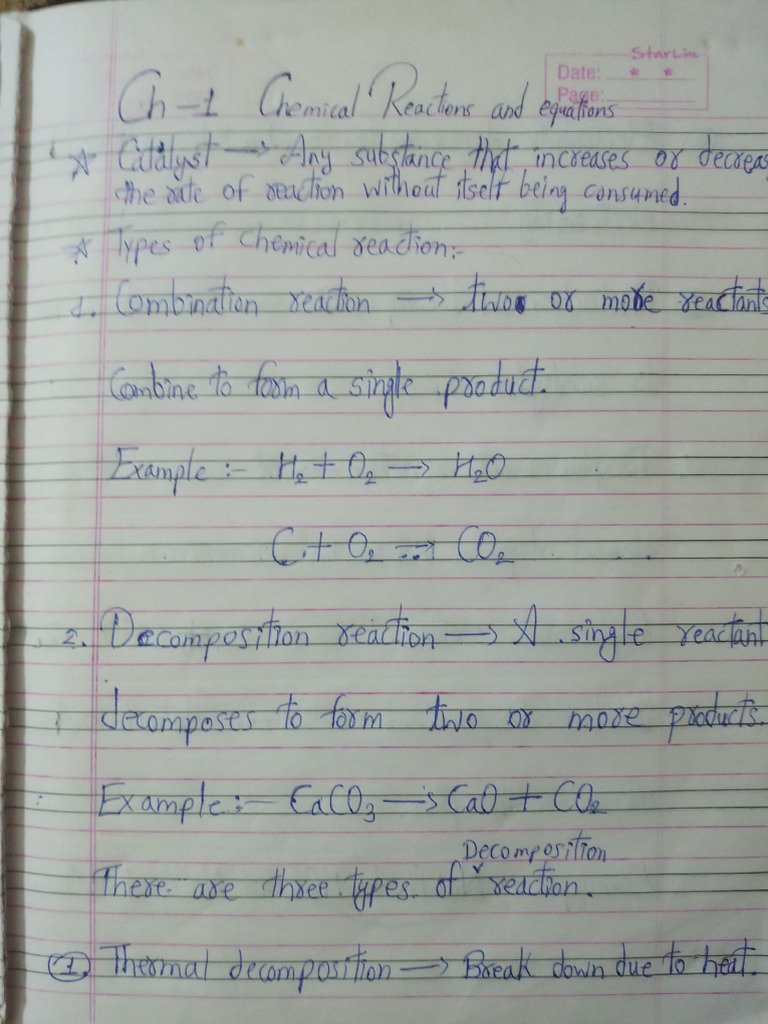 StarLine
Date: * *
Page:
Ch-1 Chemical Reactions and equations
☆ Catalyst → Any substance that increases or decreas
the rate of reaction without itself being consumed.
☆ Types of chemical reaction:-
1. Combination reaction → two or more reactants
Combine to form a single product.
Example :- H₂ + O₂ → H₂O
C + O₂ → CO₂
2. Decomposition reaction → A single reactant
decomposes to form two or more products.
Example :- CaCO₃ → CaO + CO₂
Decomposition
There are three types of ˅ reaction.
① Thermal decomposition → Break down due to heat.